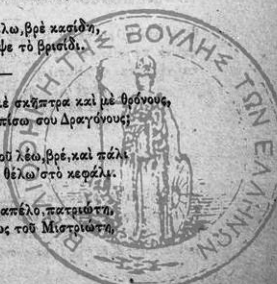 λω, βρὲ κασίδη,
ψε τὸ βρισίδι.
ὲ σκῆπτρα καὶ μὲ θρόνους,
πίσω σου Δραγόνους;
οῦ λέω, βρέ, καὶ πάλι
θέλω 'στὸ κεφάλι.
απέλο, πατριώτη,
ως τοῦ Μιστριώτη,
ΒΙΒΛΙΟΘΗΚΗ ΤΗΣ ΒΟΥΛΗΣ ΤΩΝ ΕΛΛΗΝΩΝ